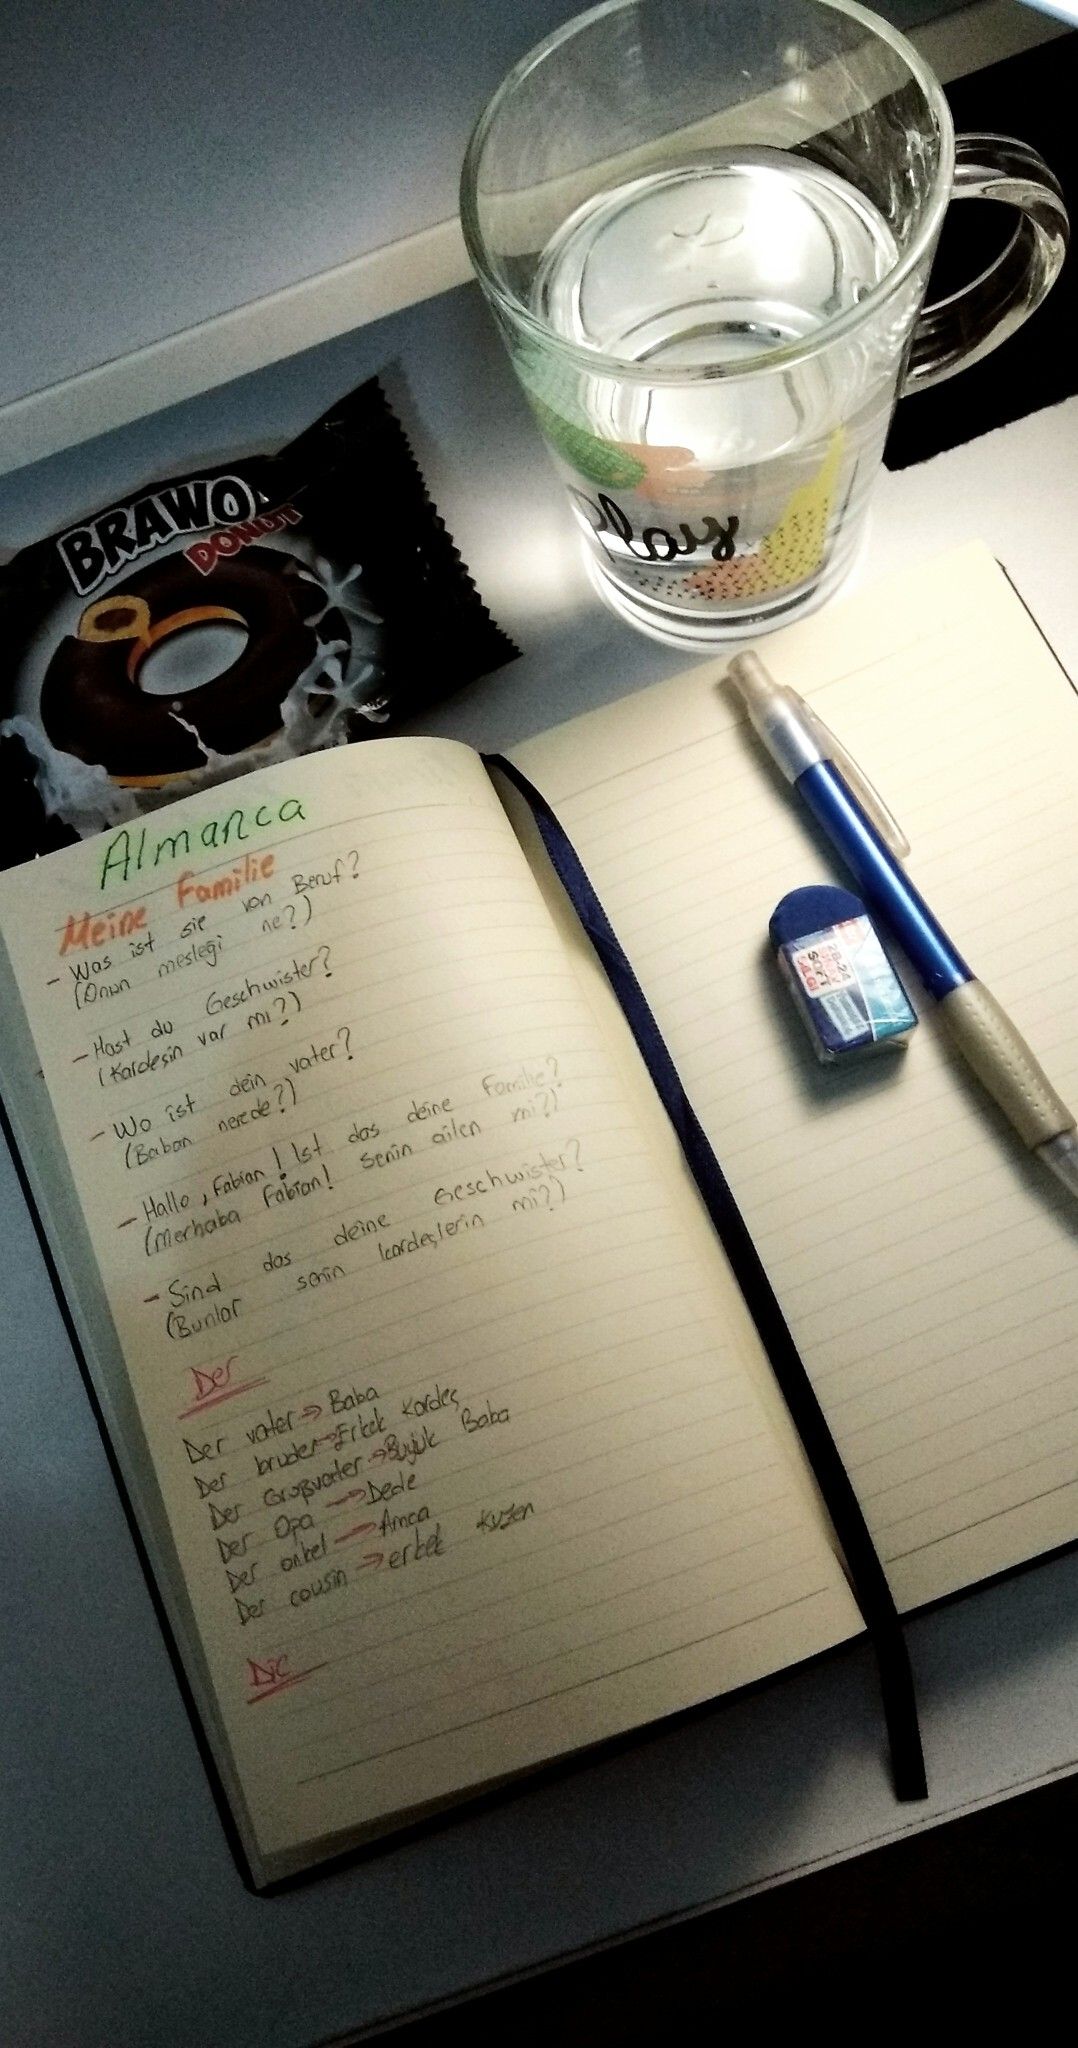 BRAWO
DONUT
Play
Almanca
Meine Familie
- Was ist sie von Beruf?
(Onun mesleği ne?)
- Hast du Geschwister?
(Kardeşin var mı?)
- Wo ist dein vater?
(Baban nerede?)
- Hallo, Fabian! Ist das deine Familie?
(Merhaba Fabian! senin ailen mi?)
- Sind das deine Geschwister?
(Bunlar senin kardeşlerin mi?)
Der
Der vater → Baba
Der bruder → Erkek Kardeş
Der Großvater → Büyük Baba
Der Opa → Dede
Der onkel → Amca
Der cousin → erkek kuzen
Die
SOFT